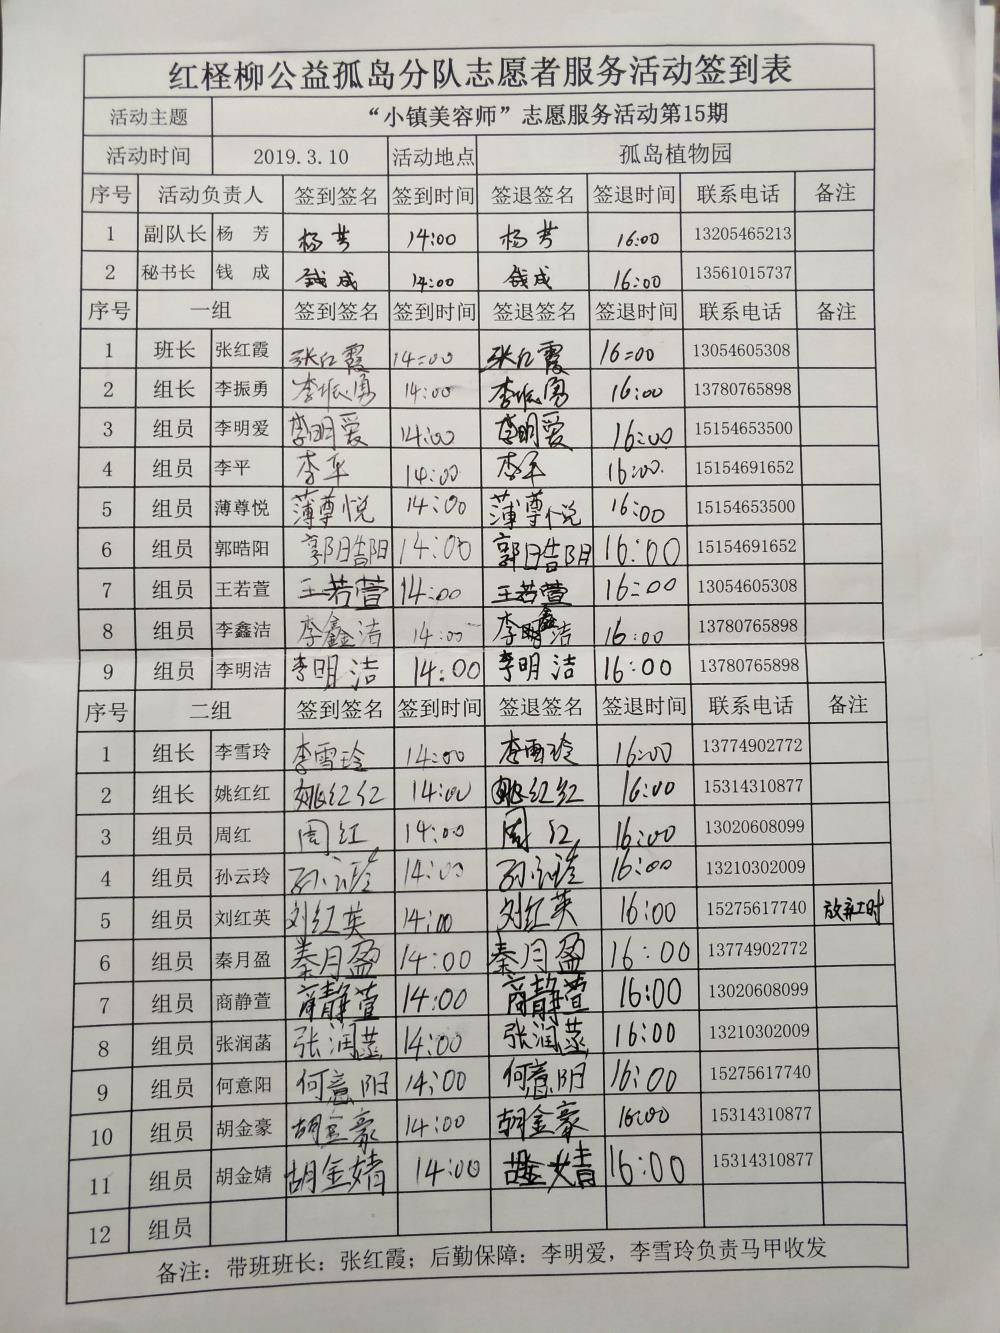 红柽柳公益孤岛分队志愿者服务活动签到表
活动主题 “小镇美容师”志愿服务活动第15期
活动时间 2019.3.10 活动地点 孤岛植物园
序号 活动负责人 签到签名 签到时间 签退签名 签退时间 联系电话 备注
1 副队长 杨 芳 杨芳 14:00 杨芳 16:00 13205465213
2 秘书长 钱 成 钱成 14:00 钱成 16:00 13561015737
序号 一组 签到签名 签到时间 签退签名 签退时间 联系电话 备注
1 班长 张红霞 张红霞 14:00 张红霞 16:00 13054605308
2 组长 李振勇 李振勇 14:00 李振勇 16:00 13780765898
3 组员 李明爱 李明爱 14:00 李明爱 16:00 15154653500
4 组员 李平 李平 14:00 李平 16:00 15154691652
5 组员 薄尊悦 薄尊悦 14:00 薄尊悦 16:00 15154653500
6 组员 郭晧阳 郭晧阳 14:00 郭晧阳 16:00 15154691652
7 组员 王若萱 王若萱 14:00 王若萱 16:00 13054605308
8 组员 李鑫洁 李鑫洁 14:00 李鑫洁 16:00 13780765898
9 组员 李明洁 李明洁 14:00 李明洁 16:00 13780765898
序号 二组 签到签名 签到时间 签退签名 签退时间 联系电话 备注
1 组长 李雪玲 李雪玲 14:00 李雪玲 16:00 13774902772
2 组长 姚红红 姚红红 14:00 姚红红 16:00 15314310877
3 组员 周红 周红 14:00 周红 16:00 13020608099
4 组员 孙云玲 孙云玲 14:00 孙云玲 16:00 13210302009
5 组员 刘红英 刘红英 14:00 刘红英 16:00 15275617740 放弃工时
6 组员 秦月盈 秦月盈 14:00 秦月盈 16:00 13774902772
7 组员 商静萱 商静萱 14:00 商静萱 16:00 13020608099
8 组员 张润菡 张润菡 14:00 张润菡 16:00 13210302009
9 组员 何意阳 何意阳 14:00 何意阳 16:00 15275617740
10 组员 胡金豪 胡金豪 14:00 胡金豪 16:00 15314310877
11 组员 胡金婧 胡金婧 14:00 胡金婧 16:00 15314310877
12 组员
备注：带班班长：张红霞；后勤保障：李明爱，李雪玲负责马甲收发